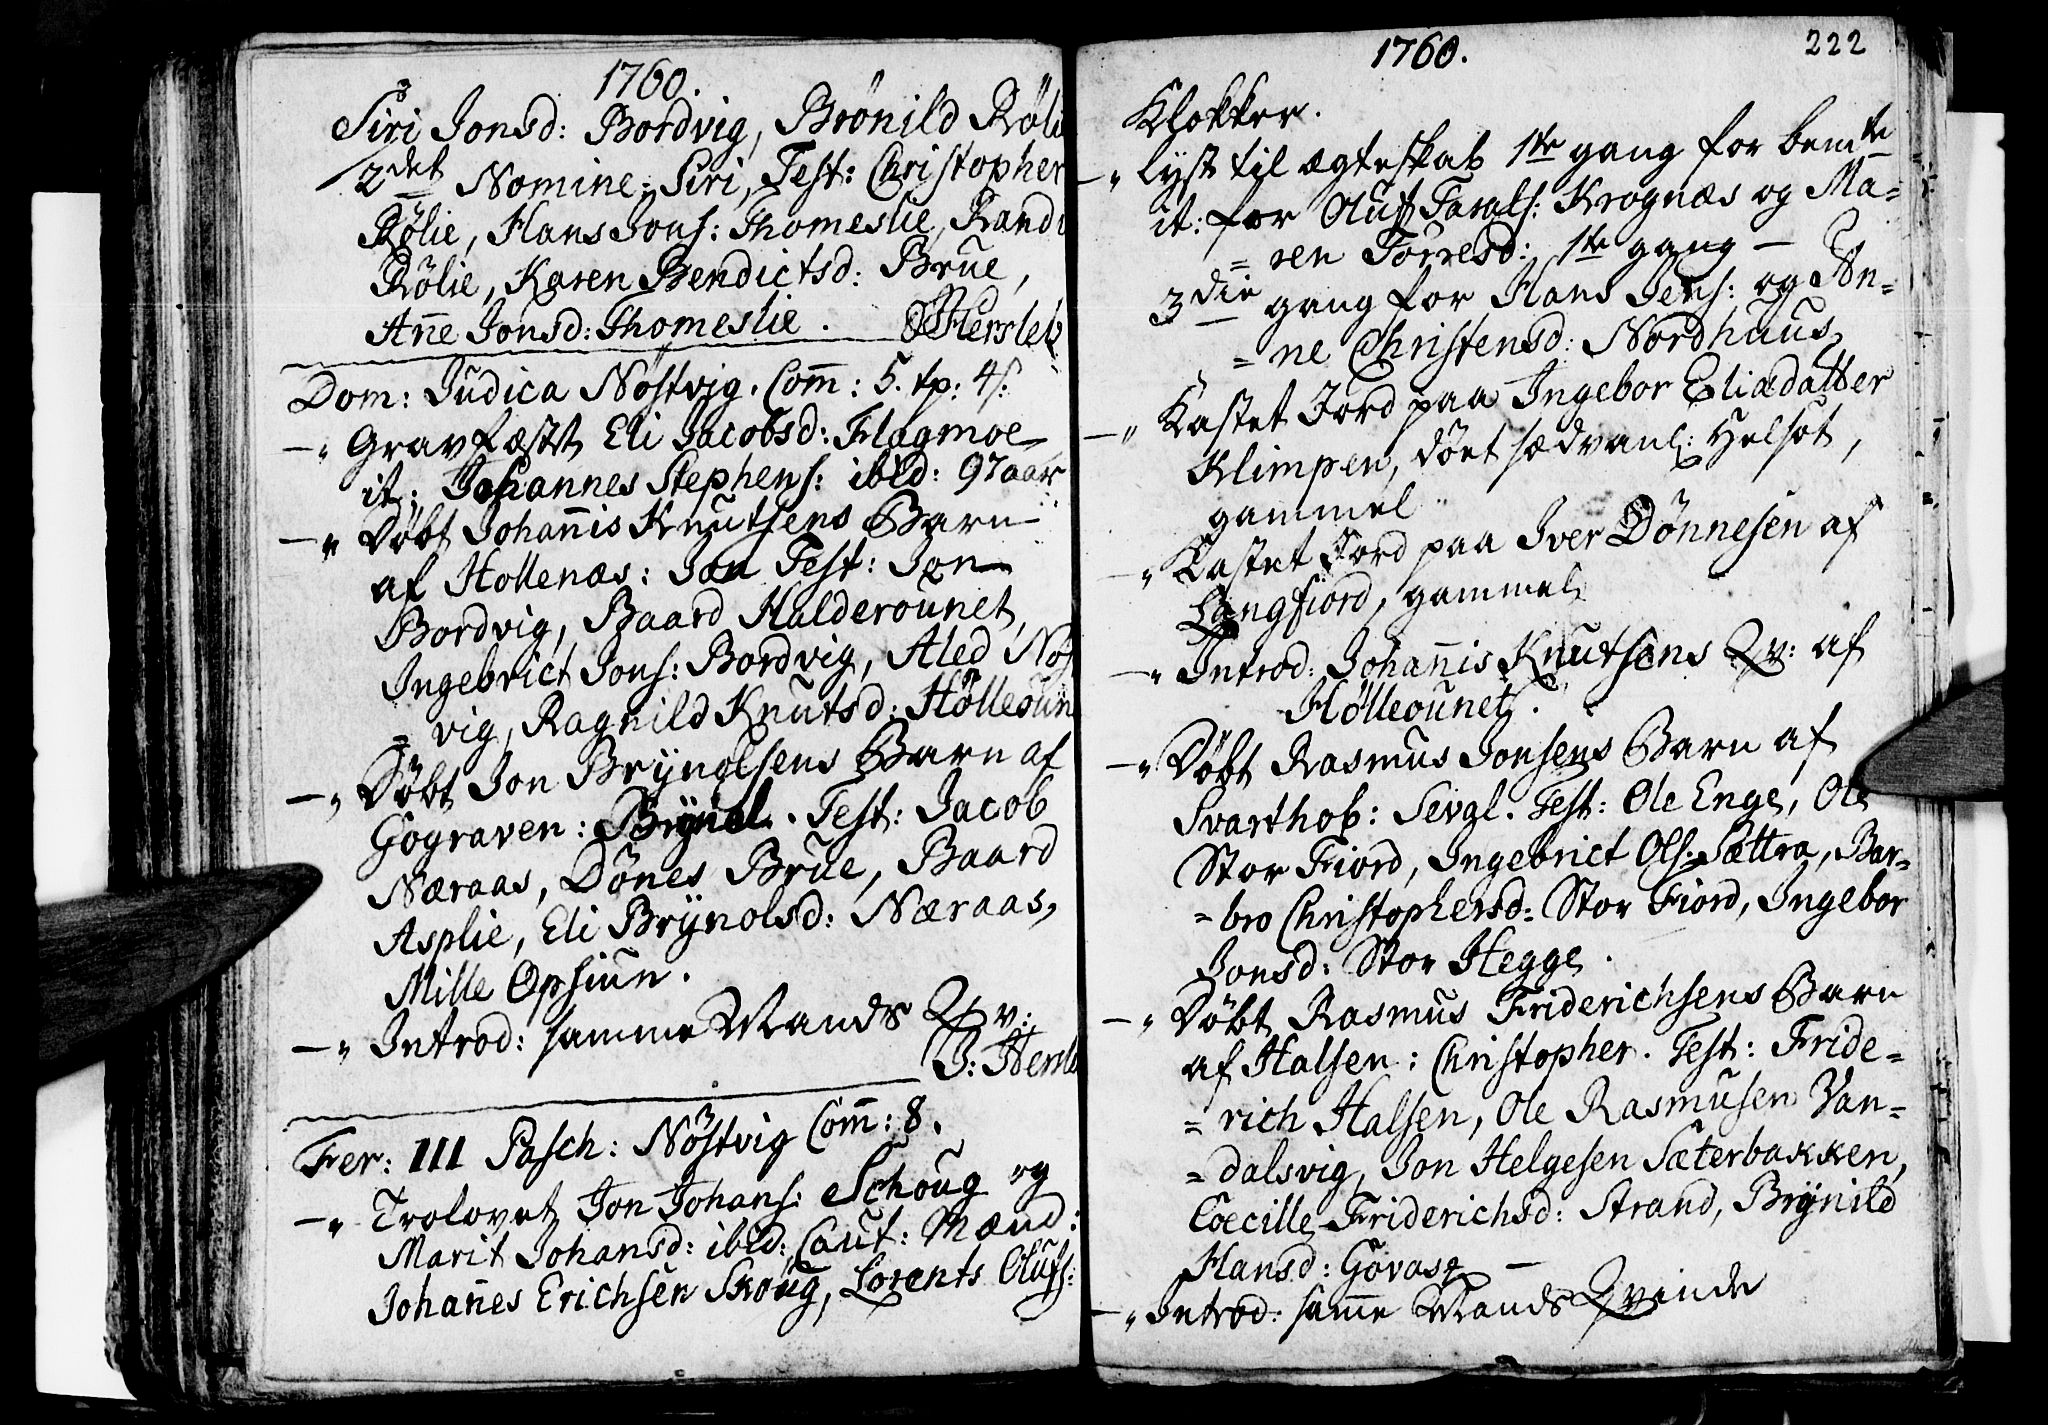 1760.
Siri Jonsd: Bordvig, Brönild Röli
2det Nomine: Siri, Test: Christopher
Rölie, Hans Jons: Thomeslie, Randi
Rölie, Karen Bendictsd: Brue,
Anne Jonsd: Thomeslie. Hersleb
Dom: Judica Nöstvig. Com: 5. tp: 4s:
–„ Gravfæstet Eli Jacobsd: Flagmoe
it: Johannes Stephens: ibid: 97 aar
–„ Döbt Johannis Knutsens Barn
af Hollenæs: Jon Test: Jon
Bordvig, Baard Halderounet,
Ingebrict Jons: Bordvig, Aled Nöst
= vig, Ragnild Knutsd: Hölleoun
–„ Döbt Jon Brÿnolsens Barn af
Gograven: Brÿnel. Test: Jacob
Næraas, Dönes Brue, Baard
Asplie, Eli Brÿnolsd: Næraas,
Mille Opsiun.
–„ Introd: samme Mands Qv:
J: Hersleb
Fer: III Pasch: Nöstvig Com: 8.
–„ Trolovet Jon Johans: Schoug og
Marit Johansd: ibid: Caut: Mænd:
Johanes Erichsen Skoug, Lorents Olufs:
1760. 222
Klokker.
–„ lyst til ægteskab 1ste gang for bemte
it: for Oluf Taralds: Krognæs og Ma=
= ren Torresd: 1ste gang –
3die gang for Hans Jens: og An=
= ne Christensd: Nordhuus,
–„ Kastet Jord paa Ingebor Eliædatter
Klimpen, döet sædvanl: Helsot,
gammel
–„ Kastet Jord paa Iver Dönnesen af
Langfiord, gammel
–„ Introd: Johannis Knutsens Qv: af
Hölleounet.
–„ Döbt Rasmus Jonsens Barn af
Svarthob: Sevgl. Test: Ole Enge, Ole
Stor Fiord, Ingebrict Ols: Sættra, Bar=
= bro Christophersd: Stor Fiord, Ingebor
Jonsd: Stor Hegge.
–„ Döbt Rasmus Friderichsens Barn
af Halsen: Christopher. Test: Fride=
= rich Halsen, Ole Rasmusen Van=
= dalsvig, Jon Helgesen Sæterbakken,
Coecille Friderichsd: Strand, Brÿnild
Hansd: Govase –
–„ Introd: same Mands Qvinde